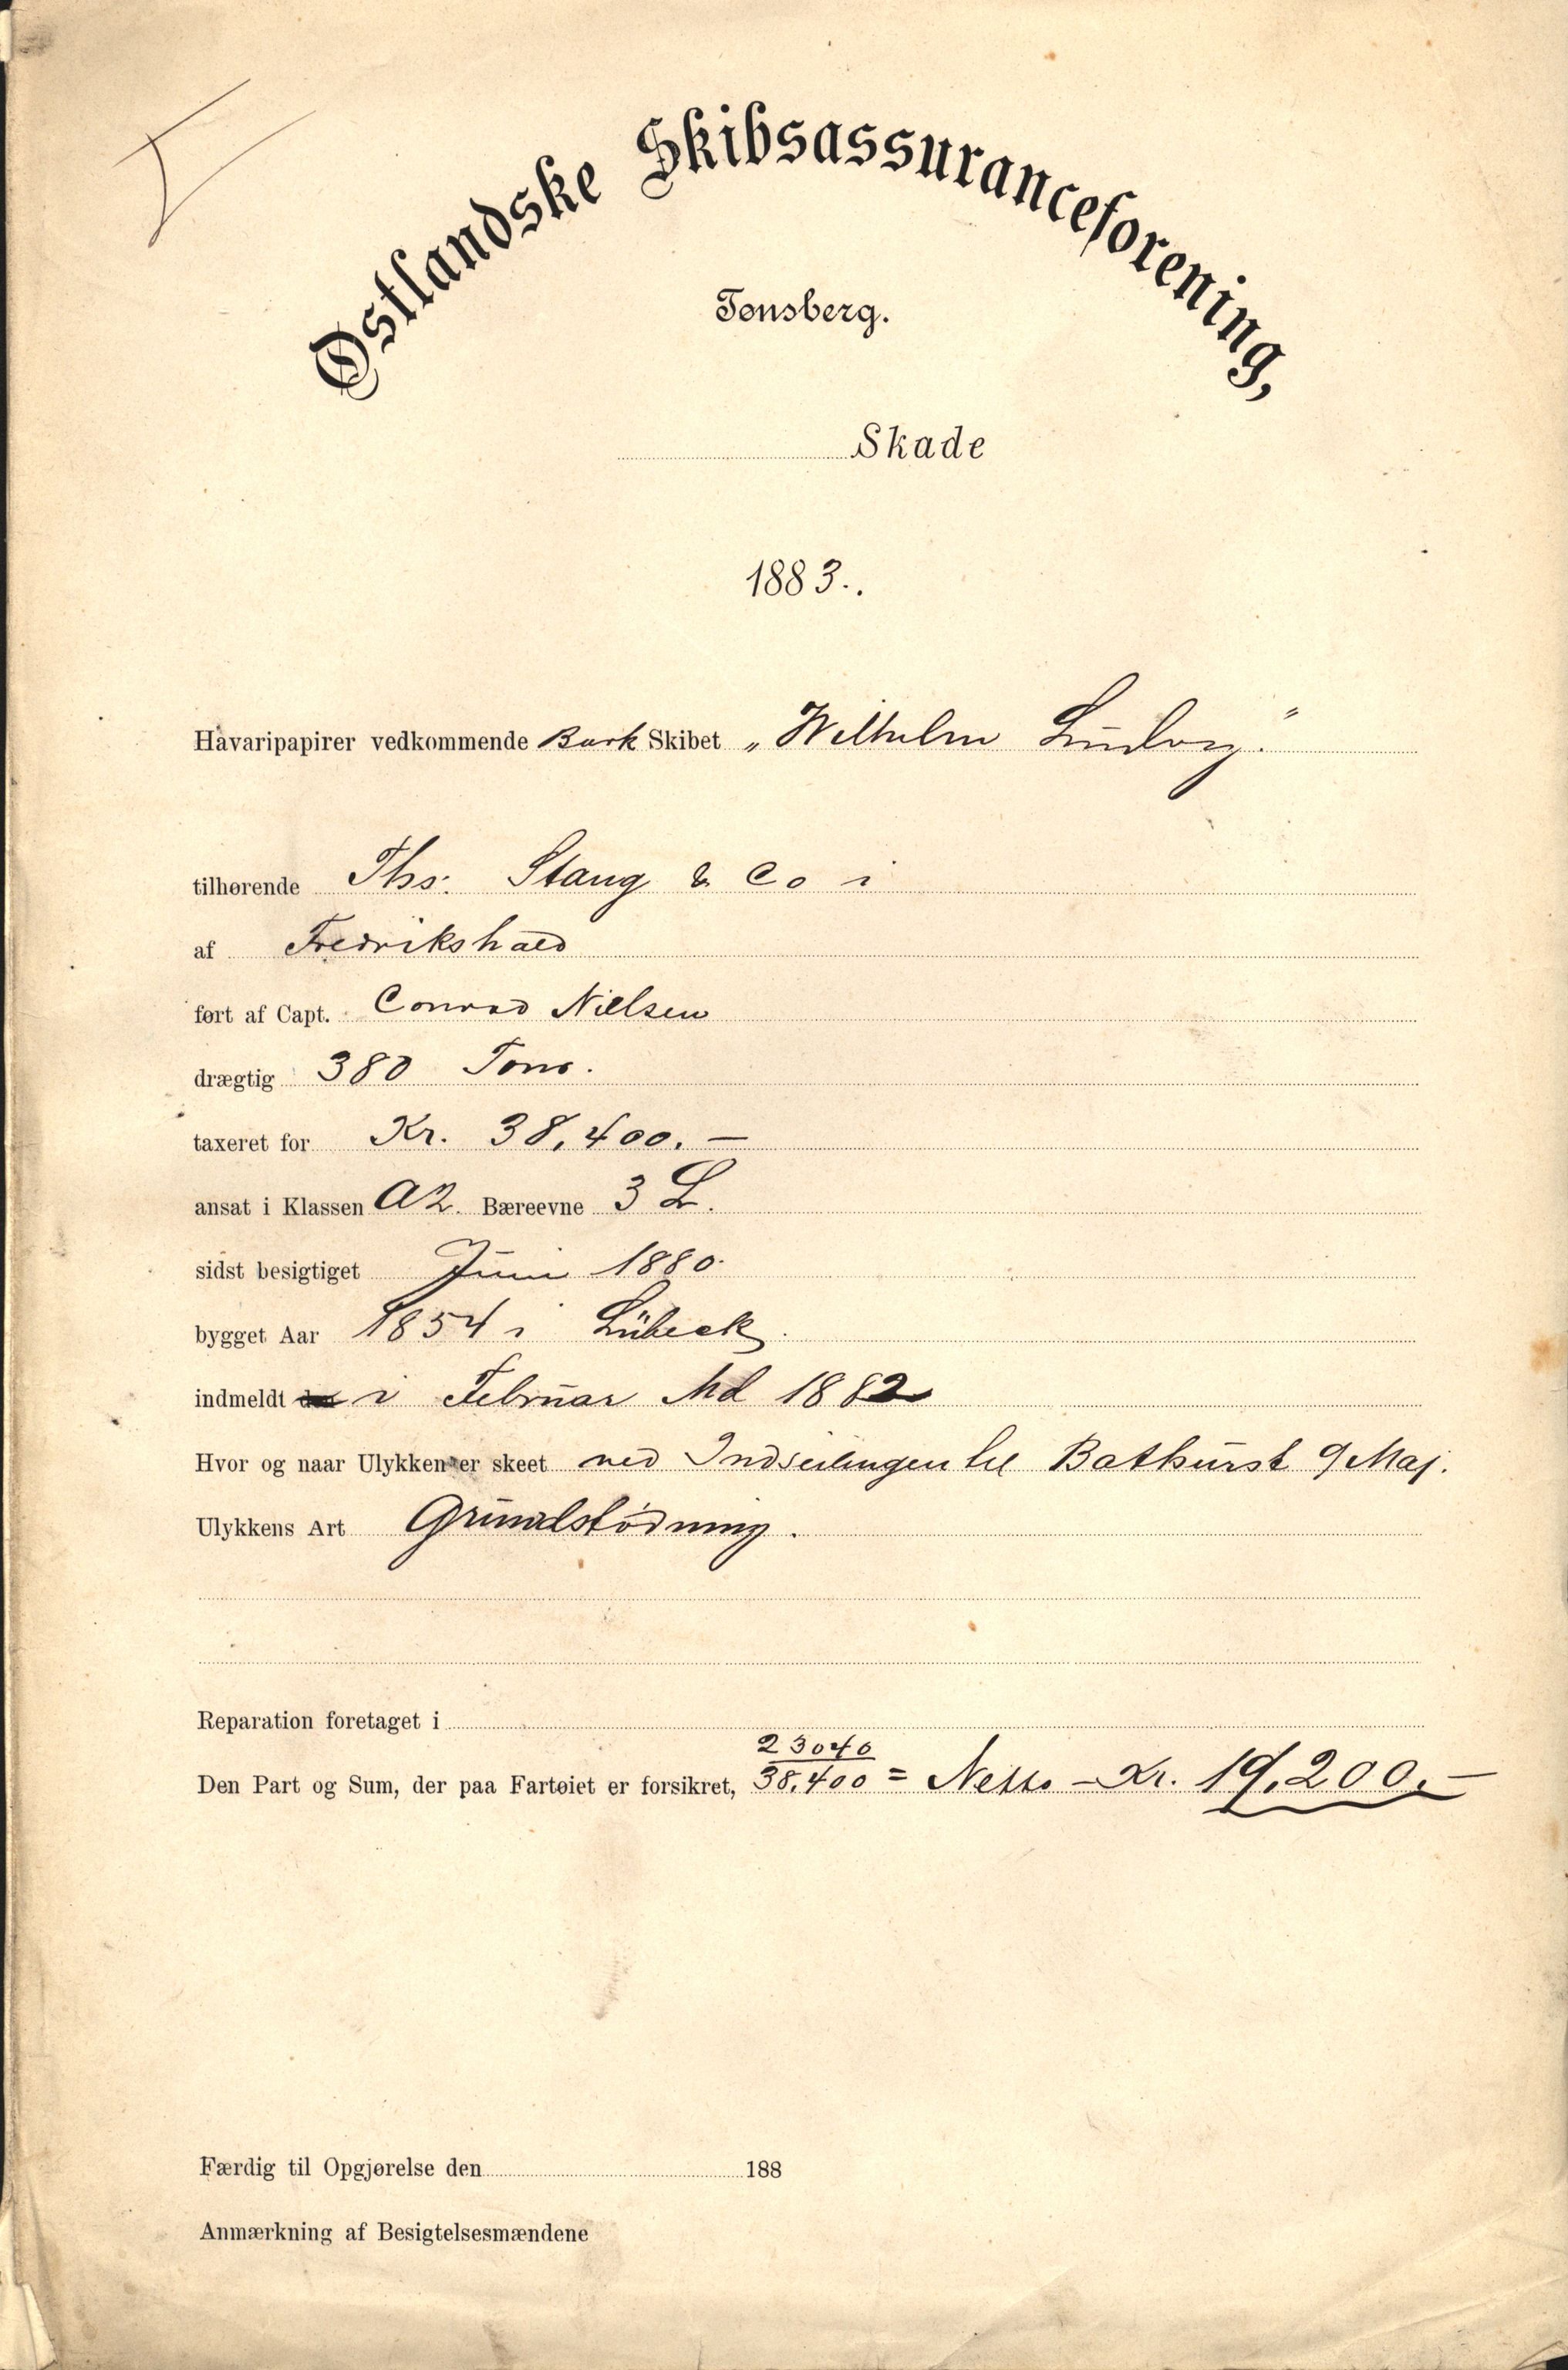 Østlandske Skibsassuranceforening,
Tønsberg.
Skade
1883.
Havaripapirer vedkommende Bark Skibet „Wilhelm Ludvig"
tilhørende Ths. Stang & Co i
af Fredrikshald
ført af Capt. Conrad Nielsen
drægtig 380 Tons.
taxeret for Kr. 38,400.—
ansat i Klassen A2. Bæreevne 3 L.
sidst besigtiget Juni 1880.
bygget Aar 1854 i Lübeck.
indmeldt i Februar Md 1882
Hvor og naar Ulykken er skeet ved Indseilingen til Bathurst 9 Maj.
Ulykkens Art Grundstødning.
Reparation foretaget i
23040
Den Part og Sum, der paa Fartøiet er forsikret, 38,400 = Netto – Kr. 19,200.—
Færdig til Opgjørelse den 188
Anmærkning af Besigtelsesmændene